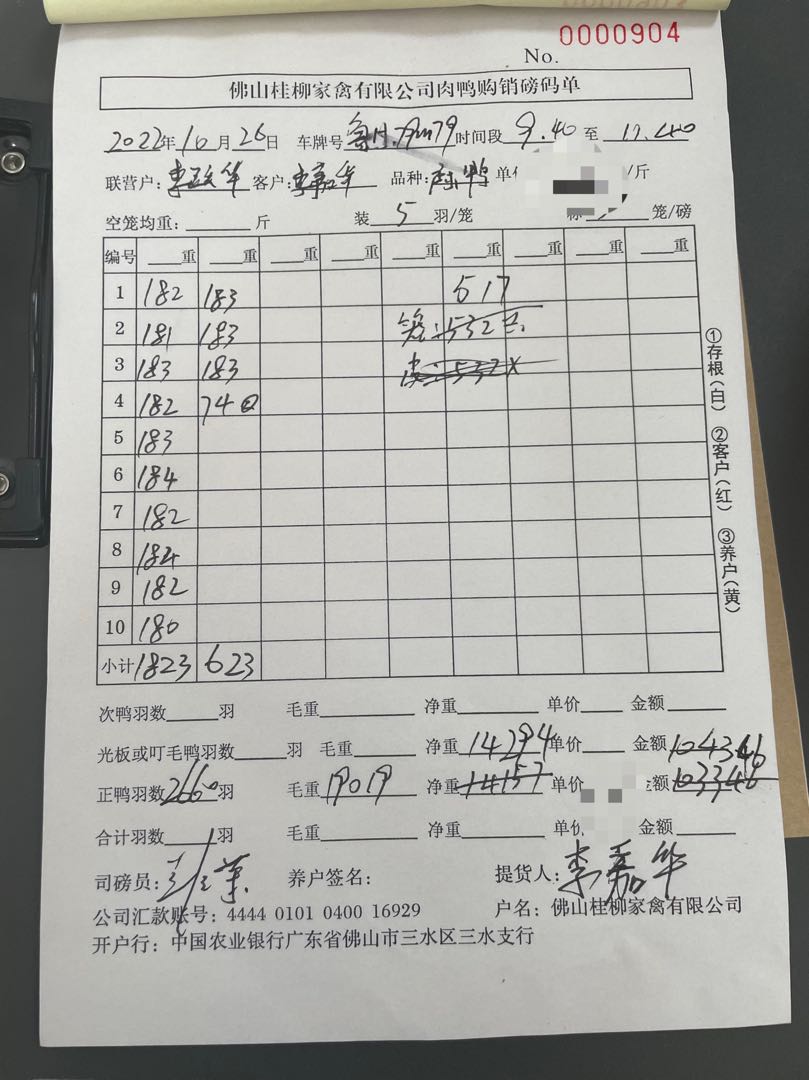 No. 0000904
佛山桂柳家禽有限公司肉鸭购销磅码单
2022年10月26日 车牌号 时间段 9.40 至 11.40
联营户: 客户:李嘉华 品种: 单 /斤
空笼均重: 斤 装 5 羽/笼 笼/磅
编号 重 重 重 重 重 重 重 重 重
1 182 183 517
2 181 183 笼:532
3 183 183 532
4 182 74
5 183
6 184
7 182
8 184
9 182
10 180
小计 1823 623
①存根(白) ②客户(红) ③养户(黄)
次鸭羽数 羽 毛重 净重 单价 金额
光板或叮毛鸭羽数 羽 毛重 净重 14294 单价 金额 104346
正鸭羽数 2660 羽 毛重 19019 净重 14157 单价 金额 103346
合计羽数 羽 毛重 净重 单价 金额
司磅员: 养户签名: 提货人:李嘉华
公司汇款账号:4444 0101 0400 16929 户名:佛山桂柳家禽有限公司
开户行:中国农业银行广东省佛山市三水区三水支行